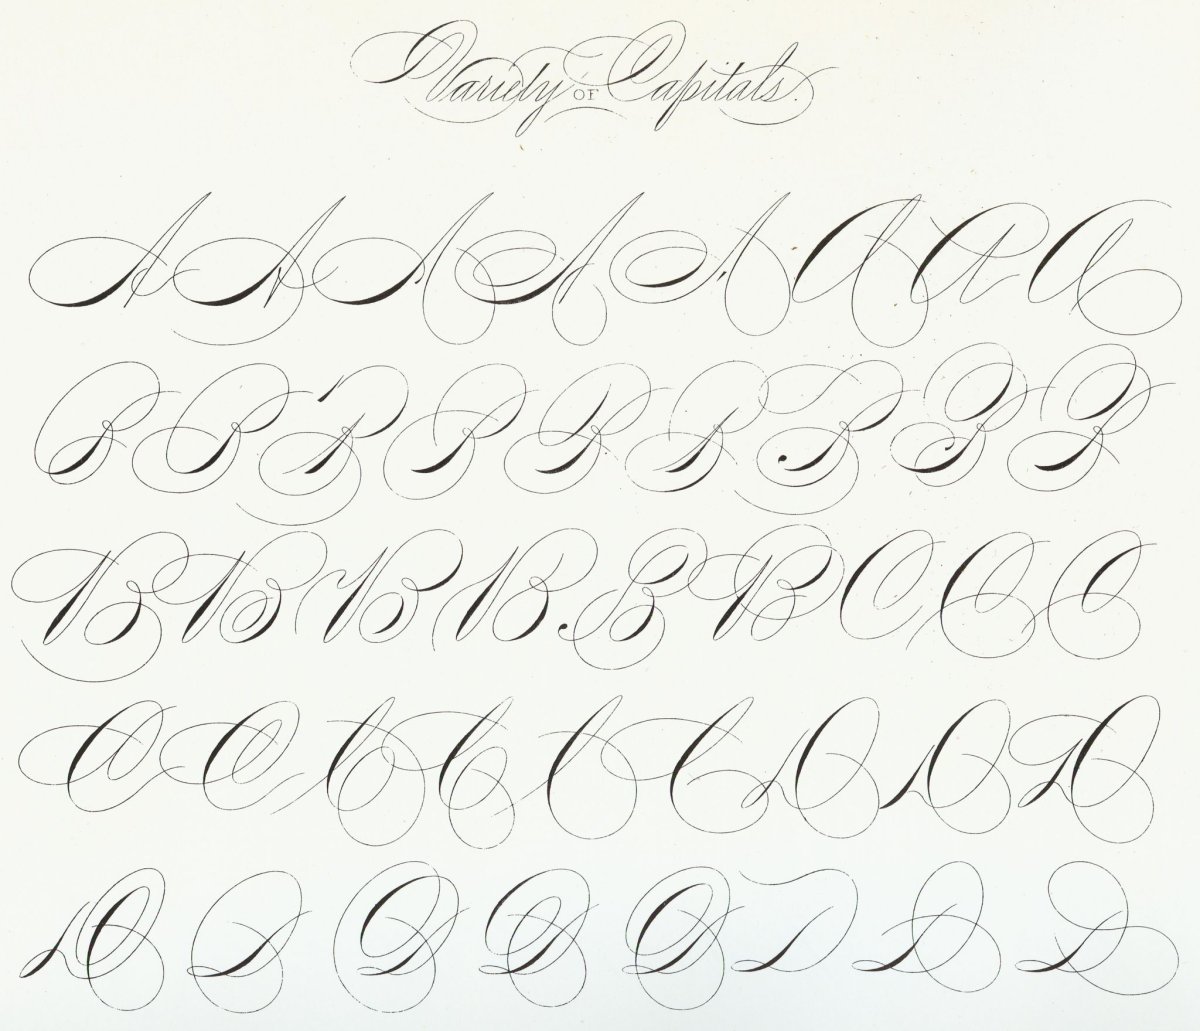 Variety OF Capitals.
A A A A A A A A
B B B B B B B B B
B B B B B B C C C
C C C C C C D D D
D D D D D D D D